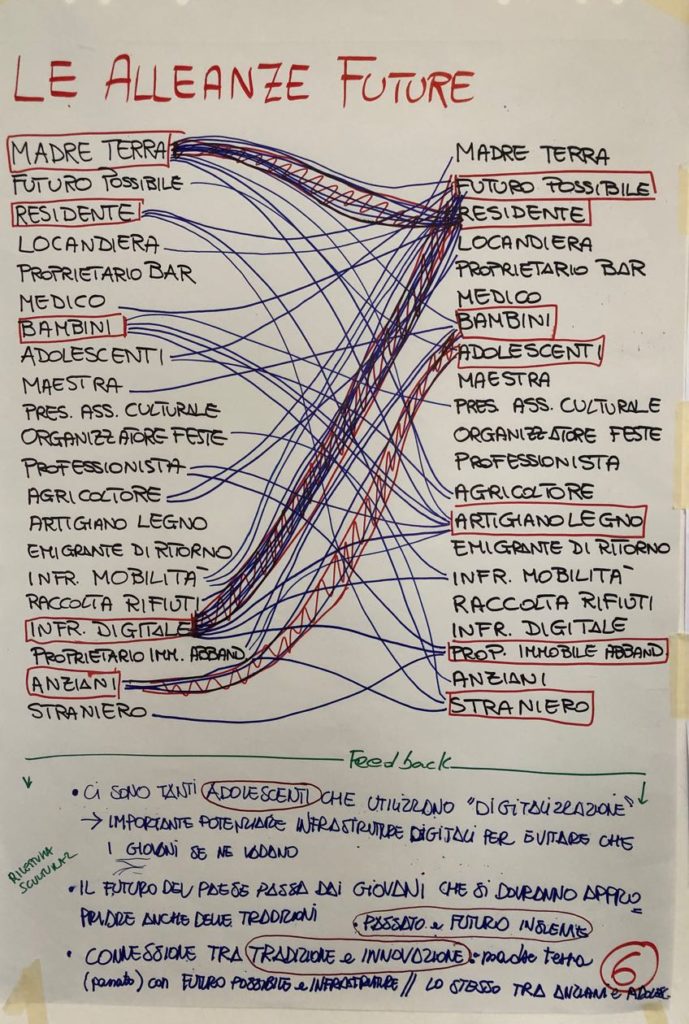 LE ALLEANZE FUTURE
MADRE TERRA
FUTURO POSSIBILE
RESIDENTE
LOCANDIERA
PROPRIETARIO BAR
MEDICO
BAMBINI
ADOLESCENTI
MAESTRA
PRES. ASS. CULTURALE
ORGANIZZATORE FESTE
PROFESSIONISTA
AGRICOLTORE
ARTIGIANO LEGNO
EMIGRANTE DI RITORNO
INFR. MOBILITÀ
RACCOLTA RIFIUTI
INFR. DIGITALE
PROPRIETARIO IMM. ABBAND.
ANZIANI
STRANIERO
MADRE TERRA
FUTURO POSSIBILE
RESIDENTE
LOCANDIERA
PROPRIETARIO BAR
MEDICO
BAMBINI
ADOLESCENTI
MAESTRA
PRES. ASS. CULTURALE
ORGANIZZATORE FESTE
PROFESSIONISTA
AGRICOLTORE
ARTIGIANO LEGNO
EMIGRANTE DI RITORNO
INFR. MOBILITÀ
RACCOLTA RIFIUTI
INFR. DIGITALE
PROP. IMMOBILE ABBAND.
ANZIANI
STRANIERO
Feedback
• CI SONO TANTI ADOLESCENTI CHE UTILIZZANO "DIGITALIZZAZIONE"
→ IMPORTANTE POTENZIARE INFRASTRUTTURE DIGITALI PER EVITARE CHE
I GIOVANI SE NE VADANO
• IL FUTURO DEL PAESE PASSA DAI GIOVANI CHE SI DOVRANNO APPRO
PRIARE ANCHE DELLE TRADIZIONI • PASSATO e FUTURO INSIEME
• CONNESSIONE TRA TRADIZIONE e INNOVAZIONE: madre terra
(passato) con FUTURO POSSIBILE e INFRASTRUTTURE // LO STESSO TRA ANZIANI e ADOLESC.
6